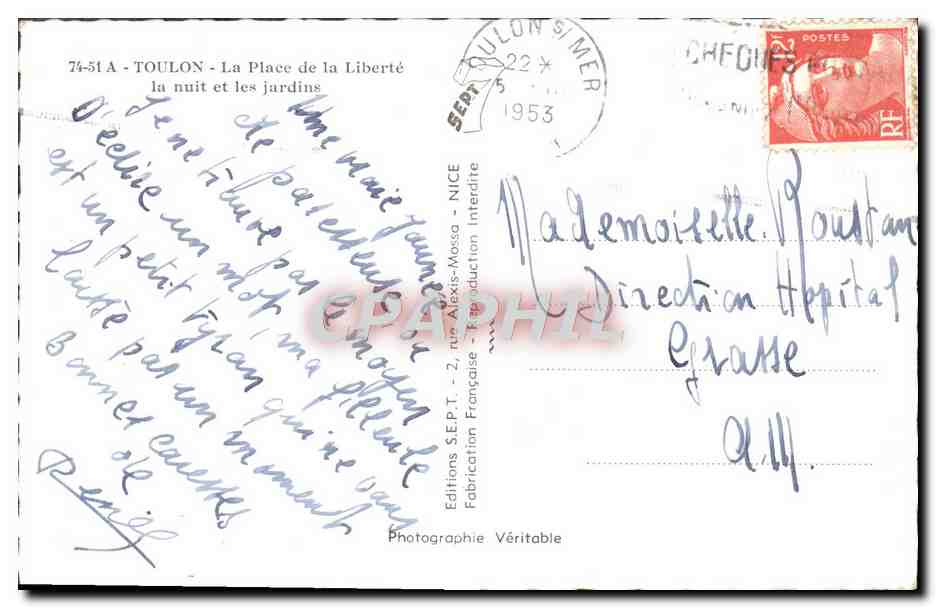 74-51 A - TOULON - La Place de la Liberté
la nuit et les jardins
Une vraie journée
de paresseuse ou
je ne trouve pas le moyen
d'écrire un mot, ma filleule
est un petit tyran qui ne vous
laisse pas un moment
Bonnes caresses
de
Renée
Editions S.E.P.T. - 2, rue Alexis-Mossa - NICE
Fabrication Française - Reproduction Interdite
Photographie Véritable
SEPT
TOULON S/MER
22 *
5
1953
CHEQUES
POSTES
RF
Mademoiselle Roustan
Direction Hopital
Grasse
A.M.
CPAPHIL